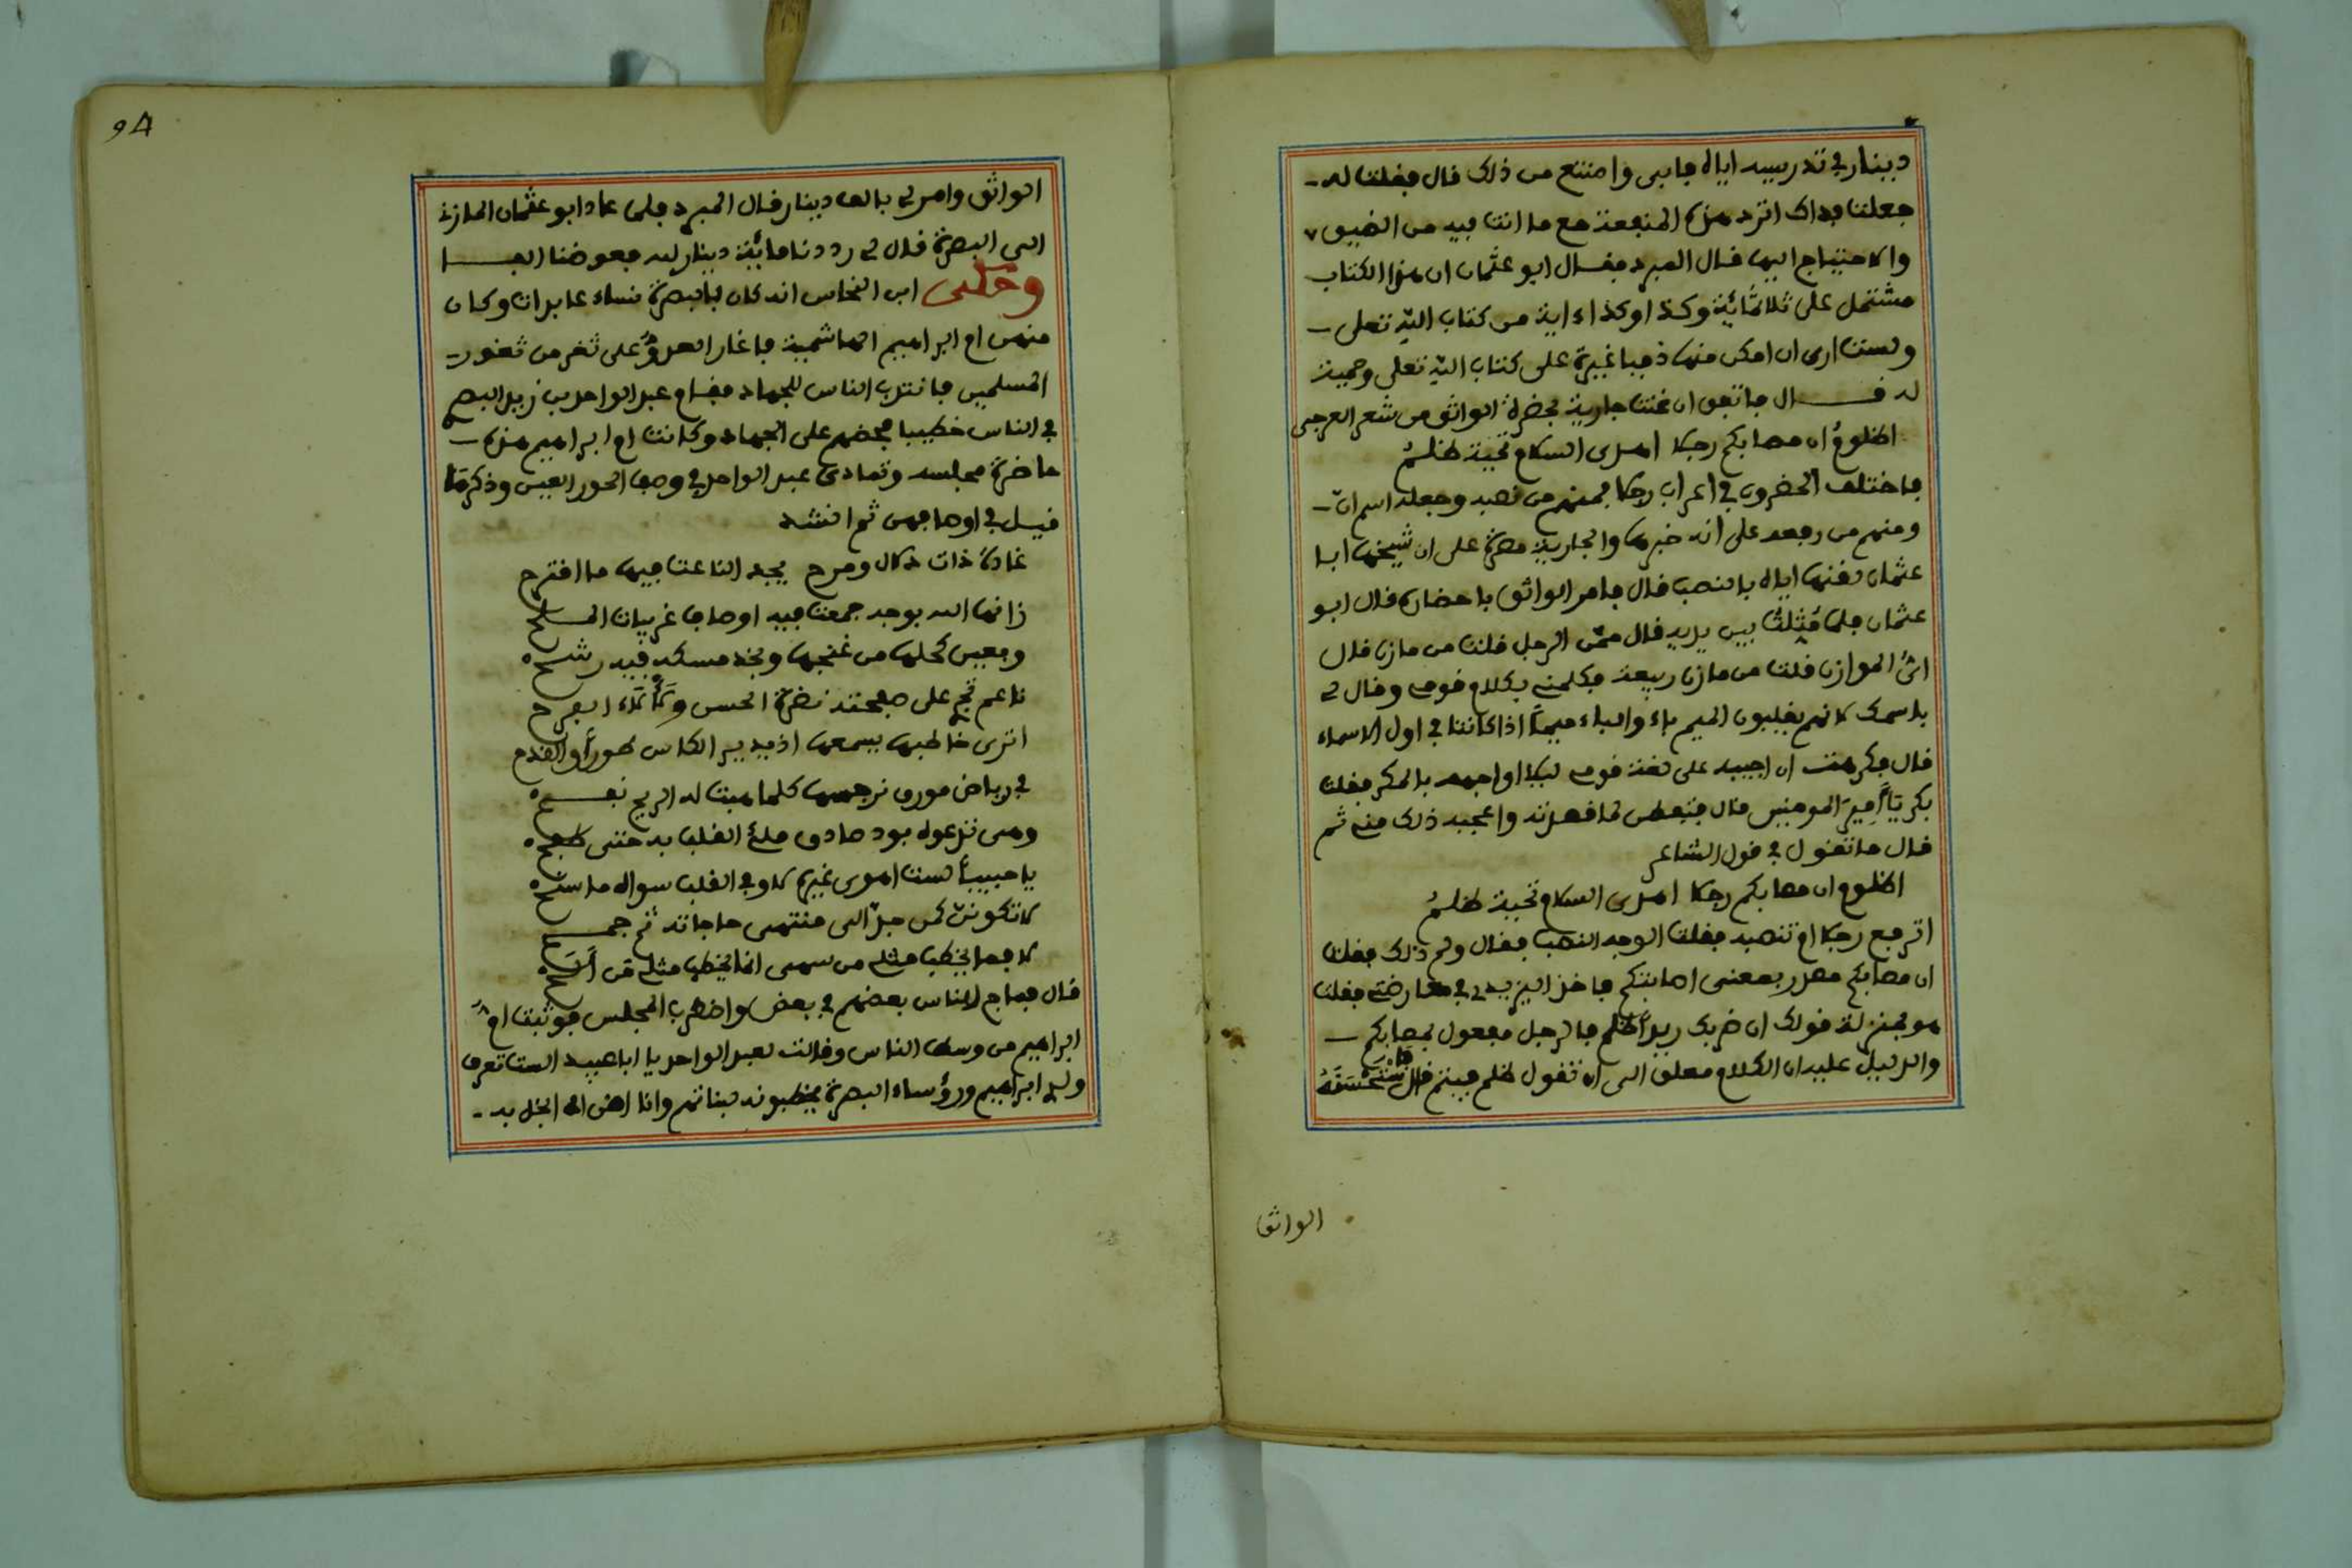 دينار في تدريسه اياه فابى وامتنع من ذلك فال ففلت له
جعلت فداك اترد هذه المنفعة مع ما انت فيه من الضيق
والاحتياج اليها فال المبرد ففال ابو عثمان ان هذا الكتاب
مشتمل على ثلاثمائة وكذا وكذا ءاية من كتاب الله تعلى
ولست ارى ان امكن منها ذميا غيرة على كتاب الله تعلى وحمية
له فال فاتفق ان غنت جارية بحضرة الواثق من شعر العرجي
اظلوم ان مصابكم رجلا اهدى السلام تحية ظلم
فاختلف الحضرون في اعراب رجلا فمنهم من نصبه وجعله اسم ان
ومنهم من رفعه على انه خبرها والجارية مصرة على ان شيخها ابا
عثمان لفنها اياه بالنصب فال فامر الواثق باحضاره فال ابو
عثمان فلما مثلت بين يديه فال ممن الرجل فلت من مازن فال
اي الموازن فلت من مازن ربيعة فكلمني بكلام فومي وفال لي
باسمك لانهم يفلبون الميم باء والباء ميماً اذا كانتا في اول الاسماء
فال فكرهت ان اجيبه على لغة فومي ليلا اواجهه بالمكر ففلت
بكر يا أمير المومنين فال فتفطن لما فصدته واعجبه ذلك مني ثم
فال ما تفول في فول الشاعر
اظلوم ان مصابكم رجلا اهدى السلام تحية ظلم
اترفع رجلا ام تنصبه ففلت الوجه النصب ففال ولم ذلك ففلت
ان مصابكم مصدر بمعنى اصابتكم فاخذ اليزيدي في معارضتي ففلت
هو بمنزلة فولك ان ضربك زيداً ظلم فالرجل مفعول بمصابكم
والدليل عليه ان الكلام معلق الى ان تفول ظلم فيتم فال فاستحسنه
الواثق
94
الواثق وامر لي بالف دينار فال المبرد فلما عاد ابو عثمان المازني
الى البصرة فال لي رددنا مائة دينار لله فعوضنا الفا
وحكى ابن النحاس انه كان بالبصرة نساء عابدات وكان
منهن ام ابراهيم الهاشمية فاغار العدو على ثغر من ثغور
المسلمين فانتدب الناس للجهاد ففام عبد الواحد بن زيد البصري
في الناس خطيبا فحضهم على الجهاد وكانت ام ابراهيم هذه
حاضرة مجلسه وتمادى عبد الواحد في وصف الحور العين وذكر ما
فيل في اوصافهن ثم انشد
غادة ذات دلال ومرح يجد الناعت فيها ما افترح
زانها الله بوجه جمعت فيه اوصاف غريبات الملح
وبعين كحلها من غنجها وبخد مسكه فيه رشح
ناعم تجري على صفحته نضرة الحسن ولألاء الفرح
اترى خاطبها يسمعها اذ يدير الكاس طوراً والفدح
في رياض مورق نرجسها كلما هبت له الريح نفح
وهي تدعوه بود صادق ملئ الفلب به حتى طفح
يا حبيباً لست اهوى غيره لا وفي الفلب سواه ما سنح
لا تكونن كمن جد الى منتهى حاجاته ثم جمح
لا فما يخطب مثلي من سهى انما يخطب مثلي من ألح
فال فماج الناس بعضهم في بعض واضطرب المجلس فوثبت ام
ابراهيم من وسط الناس وفالت لعبد الواحد يا ابا عبيد الست تعرف
ولدي ابراهيم ورؤساء البصرة يخطبونه لبناتهم وانا اضن به